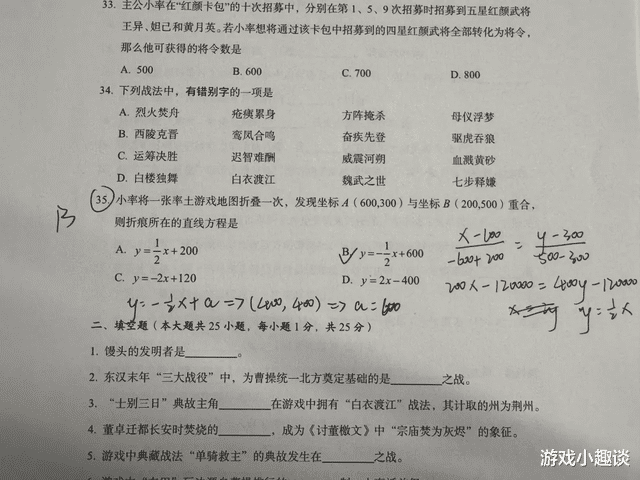 33. 主公小率在“红颜卡包”的十次招募中，分别在第 1、5、9 次招募时招募到五星红颜武将
王异、妲己和黄月英。若小率想将通过该卡包中招募到的四星红颜武将全部转化为将令，
那么他可获得的将令数是
A. 500 B. 600 C. 700 D. 800
34. 下列战法中，有错别字的一项是
A. 烈火焚舟 疮痍累身 方阵掩杀 母仪浮梦
B. 西陵克晋 鸾凤合鸣 奋疾先登 驱虎吞狼
C. 运筹决胜 迟智难酬 威震河朔 血溅黄砂
D. 白楼独舞 白衣渡江 魏武之世 七步释嫌
B
35. 小率将一张率土游戏地图折叠一次，发现坐标 A（600,300）与坐标 B（200,500）重合，
则折痕所在的直线方程是
A. y=1/2x+200 B. y=-1/2x+600
C. y=-2x+120 D. y=2x-400
x-600/-600+200 = y-300/500-300
200x-120000=400y-120000
y=1/2x
y=-1/2x+a=>(400,400)=>a=600
二、填空题（本大题共 25 小题，每小题 1 分，共 25 分）
1. 馒头的发明者是________。
2. 东汉末年“三大战役”中，为曹操统一北方奠定基础的是________之战。
3. “士别三日”典故主角________在游戏中拥有“白衣渡江”战法，其计取的州为荆州。
4. 董卓迁都长安时焚烧的________，成为《讨董檄文》中“宗庙焚为灰烬”的象征。
5. 游戏中典藏战法“单骑救主”的典故发生在________之战。
游戏小趣谈